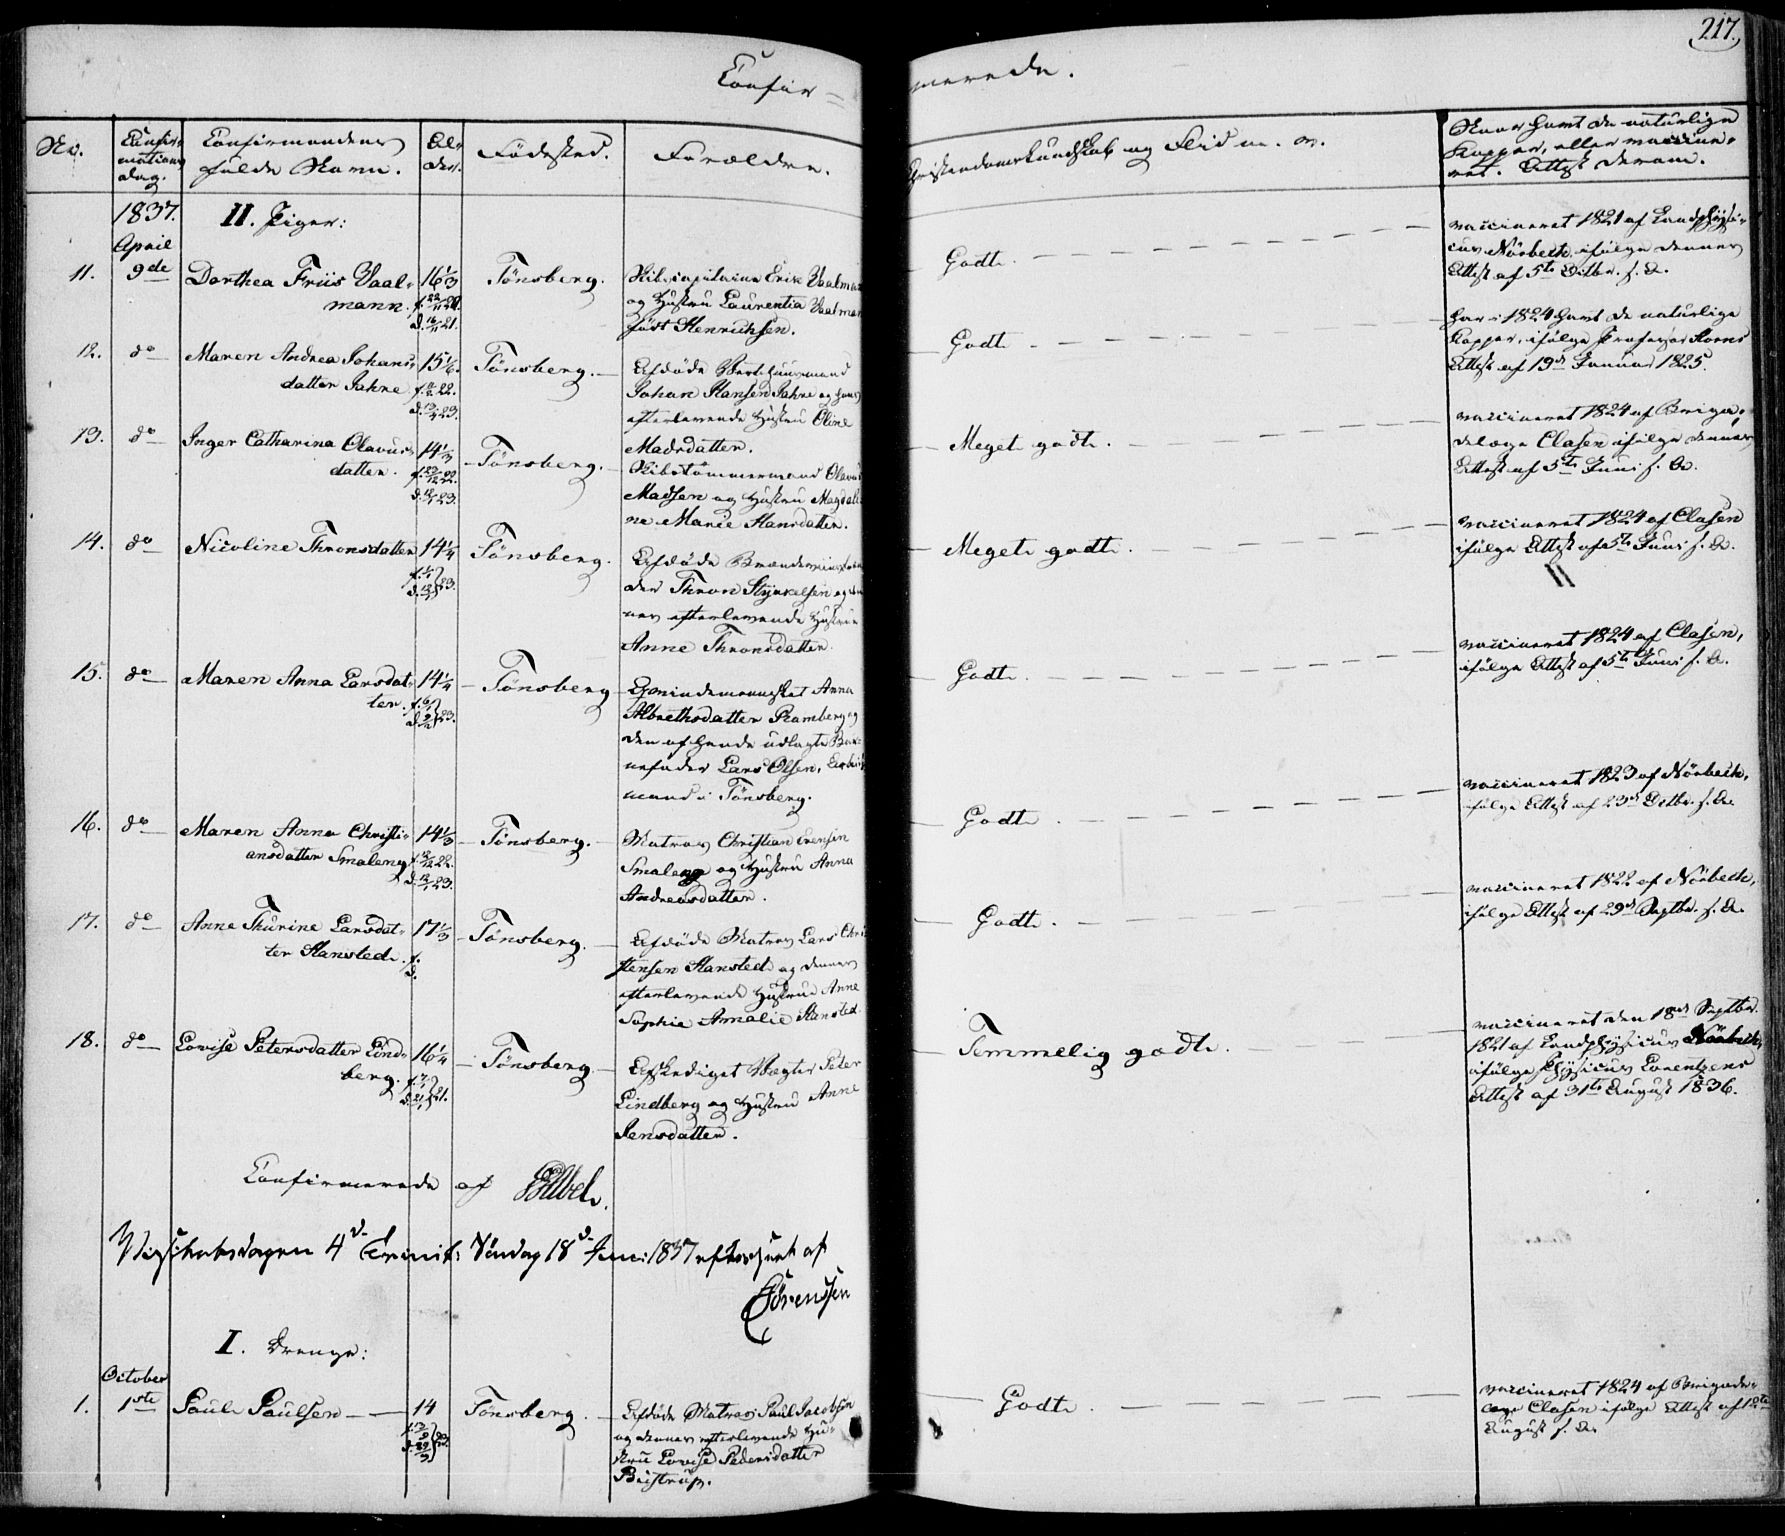 217.
Confir=
merede.
No.
Confir-
mations
dag.
Confirmandens
fulde Navn.
Al-
der.
Födested.
Forældre.
Christendomskundskab og Flid m. v.
Naar havt de naturlige
Kopper, eller vaccine-
ret. Attest derom.
1837.
II. Piger:
April
11.
9de
Dorthea Friis Vaal-
mann.
16 1/3
f. 22/11 20.
d. 16/11 21.
Tönsberg.
Skibscapitaine Erik Vaalman
og Hustru Laurentia Vaalman
födt Henrichsen.
Godt.
vaccineret 1821 af Landphysi-
cus Nörbech, ifölge dennes
Attest af 5te Octbr. s. A.
12.
do
Maren Andrea Johans-
datter Jahre
15 1/6.
Tönsberg.
Afdöde
Johan Hansen Jahre og hans
efterlevende Hustru Oline
Madsdatter.
Godt
har i 1824 havt de naturlige
Kopper, ifölge Professor Horns
Attest af 19de Januar 1825.
13.
do
Inger Catharina Olavus-
datter.
14 1/3
Tönsberg.
Skibstömmermand Olavus
Madsen og Hustru Magdale
ne Marie Hansdatter.
Meget godt.
vaccineret 1824 af Briga-
delæge Clasen ifölge dennes
Attest af 5te Juni s. A.
14.
do
Nicoline Thronsdatter
14 1/4
Tönsberg.
Afdöde
der Thron Styrkelsen og den
nes efterlevende Hustrue
Anne Thronsdatter.
Meget godt.
vaccineret 1824 af Clasen
ifölge Attest af 5te Juni s. A.
15.
do
Maren Anna Larsdat-
ter.
14 1/4
Tönsberg
Qvindemennesket Anna
Albrethsdatter Ramberg og
den af hende udlagte Bar-
nefader Lars Olsen, Arbeids
mand i Tönsberg.
Godt.
vaccineret 1824 af Clasen,
ifölge Attest af 5te Juni s. A.
16.
do
Maren Anna Christi-
ansdatter Smaleng
14 1/3
f. 12/12 22.
d. 12/1 23.
Tönsberg.
Matros Christian Evensen
Smaleng og Hustru Anna
Andreasdatter.
Godt
vaccineret 1823 af Nörbech,
ifölge Attest af 23de Octbr. s. A.
17.
do
Anne Thurine Larsdat-
ter Hansted.
17 1/3
f.
d.
Tönsberg.
Afdöde Matros Lars Chri
stensen Hansted og dennes
efterlevende Hustrue Anne
Sophie Amalie Hansted.
Godt.
vaccineret 1822 af Nörbech,
ifölge Attest af 29de Septbr. s. A.
18.
do
Lovise Petersdatter Lind-
berg.
16 1/4
Tönsberg
Afskediget Vægter Peter
Lindberg og Hustru Anne
Jensdatter.
Temmelig godt.
vaccineret den 18de Septbr.
1821 af Landphysicus Nörbech
ifölge Physicus Lorentzens
Attest af 31te August 1836.
Confirmerede af Abel.
Visitatsdagen 4d. Trinit: Söndag 18d. Juni 1837 efterseet af
Sörenssen
I. Drenge:
October
1.
1ste
Paul Paulsen
14
Tönsberg.
Afdöde Matros Paul Jacobsen
og dennes efterlevende Hu-
stru Lovise Pedersdatter
Bistrup.
Godt.
vaccineret 1824 af Brigade-
læge Clasen ifölge Attest af 18de
August s. A.